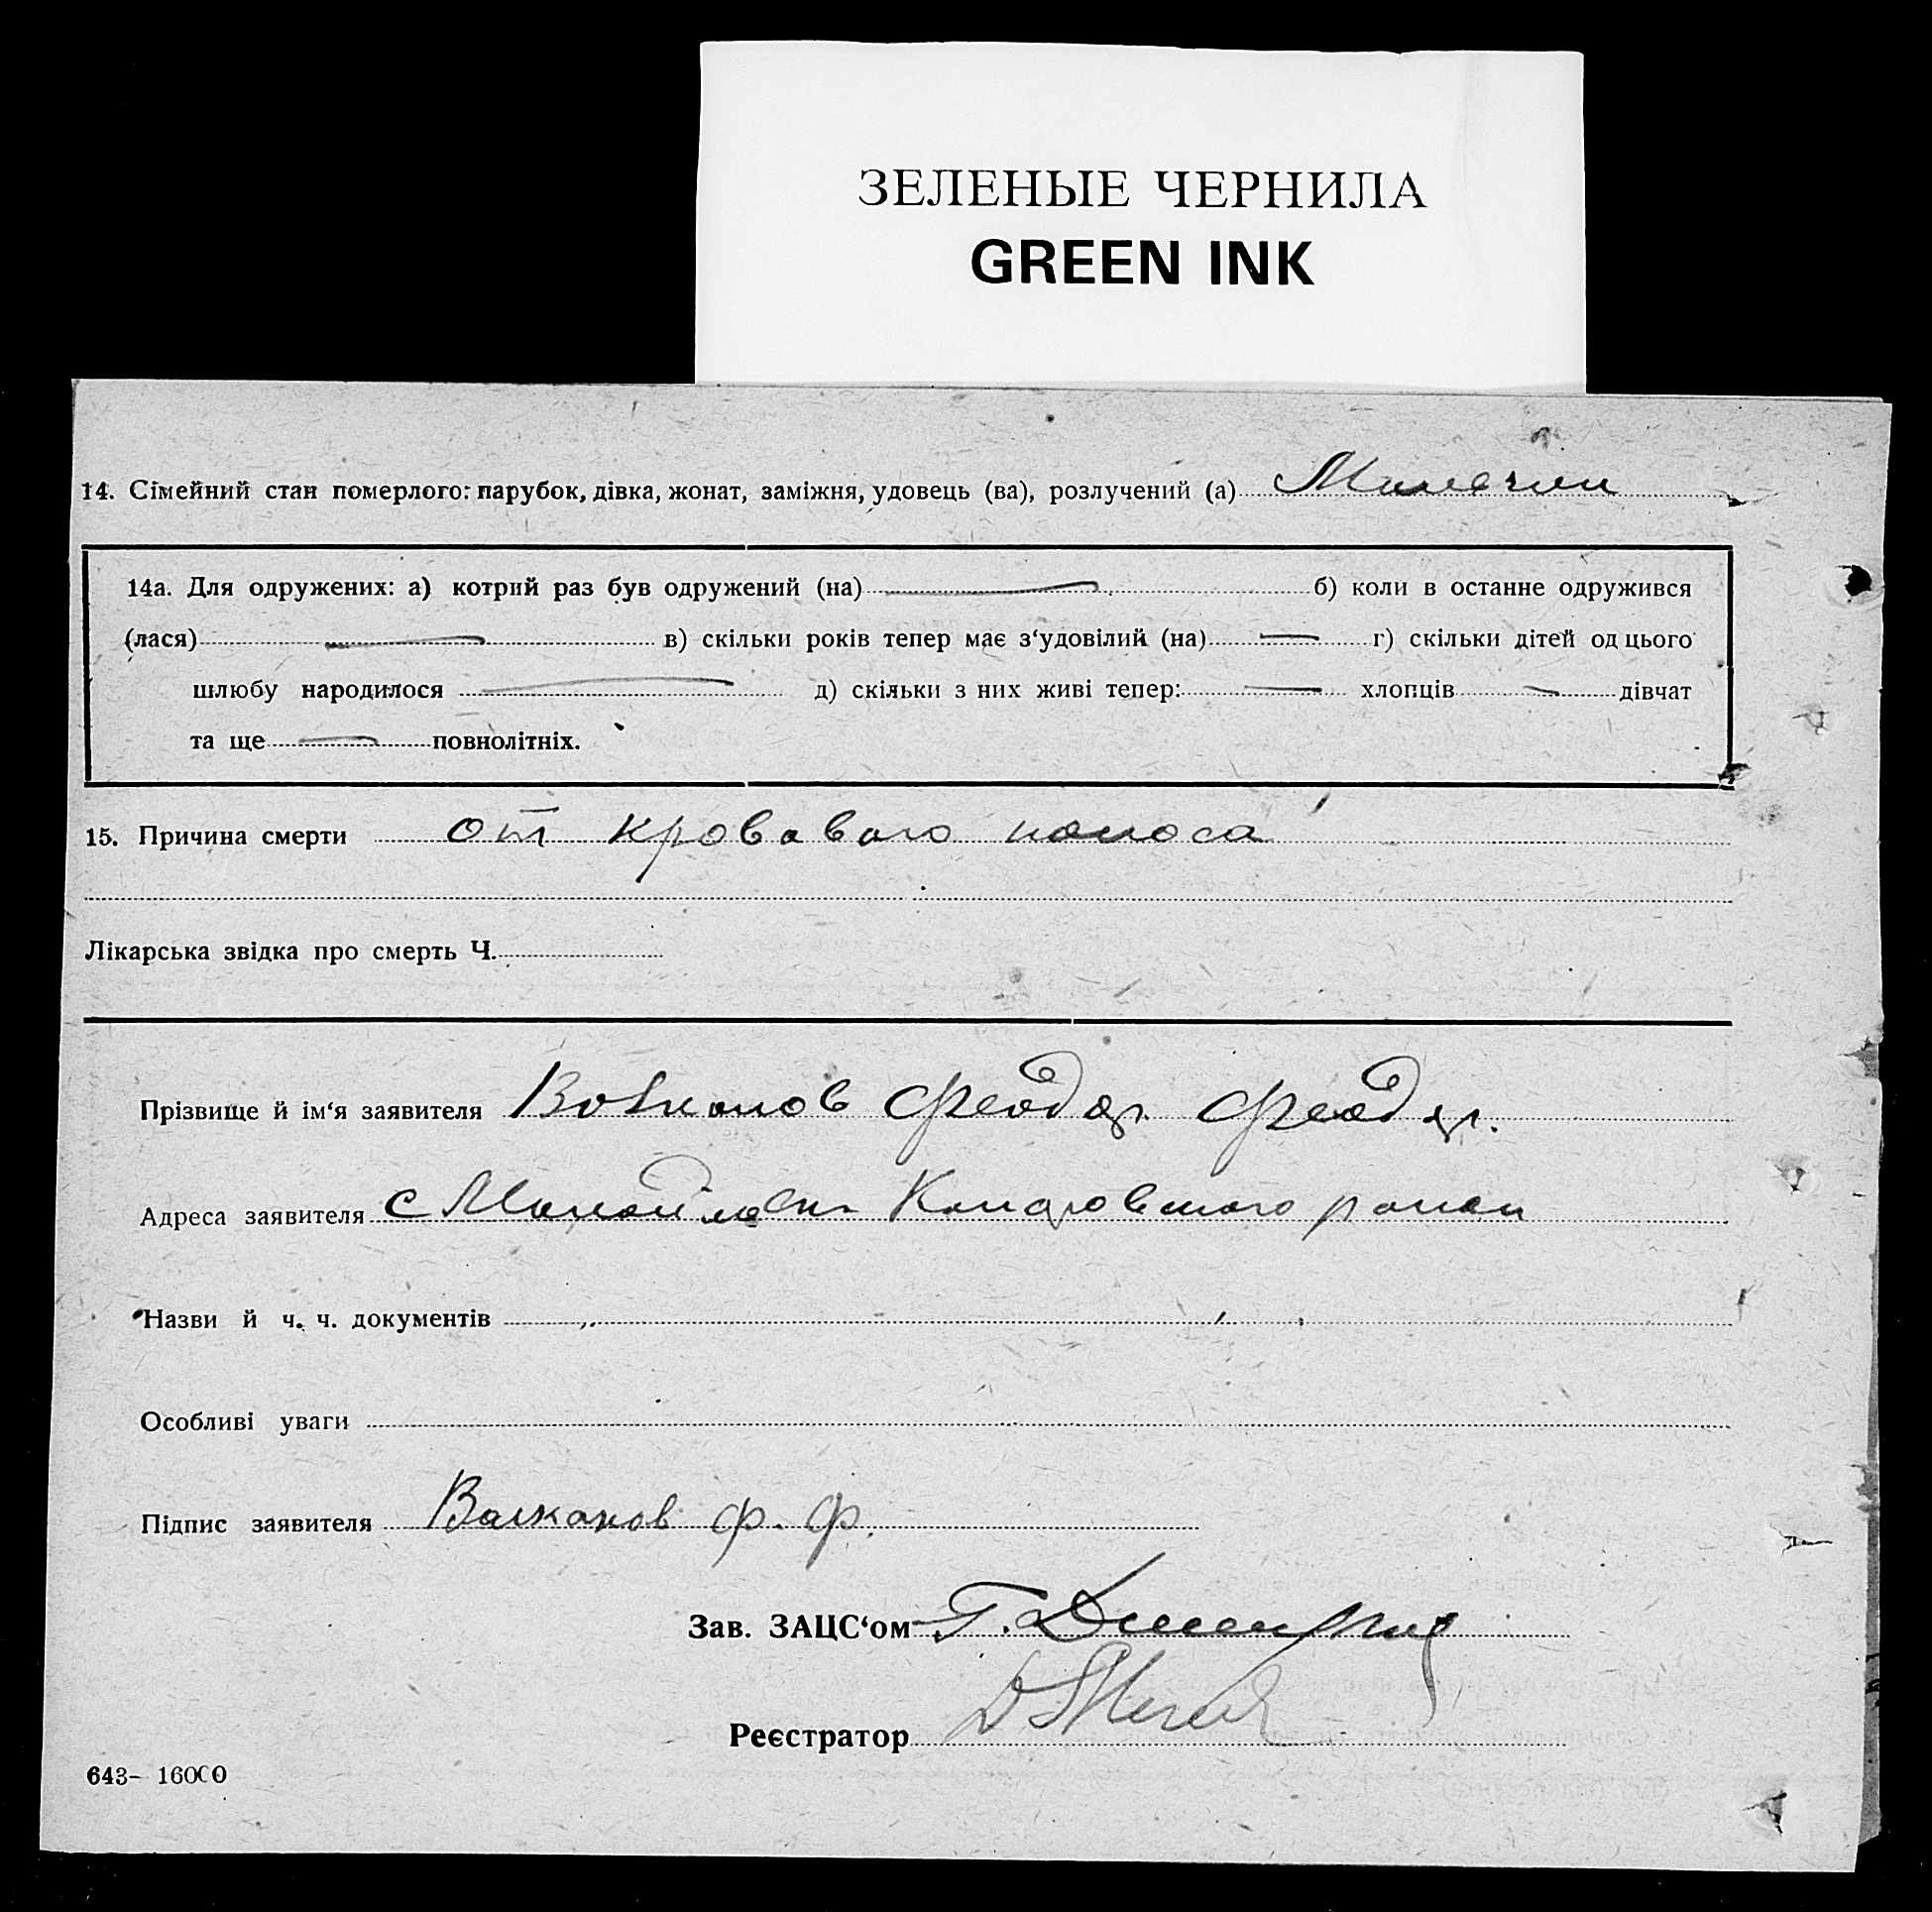 ЗЕЛЕНЫЕ ЧЕРНИЛА
GREEN INK
14. Сімейний стан померлого: парубок, дівка, жонат, заміжня, удовець (ва), розлучений (а)
14а. Для одружених: а) котрий раз був одружений (на) — б) коли в останне одружився
(лася) — в) скільки років тепер має з‘удовілий (на) — г) скільки дітей од цього
шлюбу народилося — д) скільки з них живі тепер: — хлопців — дівчат
та ще — повнолітніх.
15. Причина смерти от кровавого поноса
Лікарська звідка про смерть Ч.
Прізвище й ім‘я заявителя Феодор Феодор.
Адреса заявителя с района
Назви й ч. ч. документів
Особливі уваги
Підпис заявителя Валканов Ф. Ф.
Зав. ЗАЦС‘ом Г.
Реєстратор
643– 16000